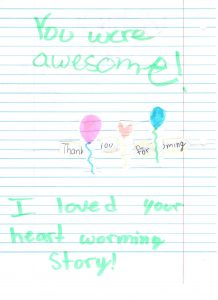 You were
awesome!
Thank You for oming
I loved your
heart worming
Story!